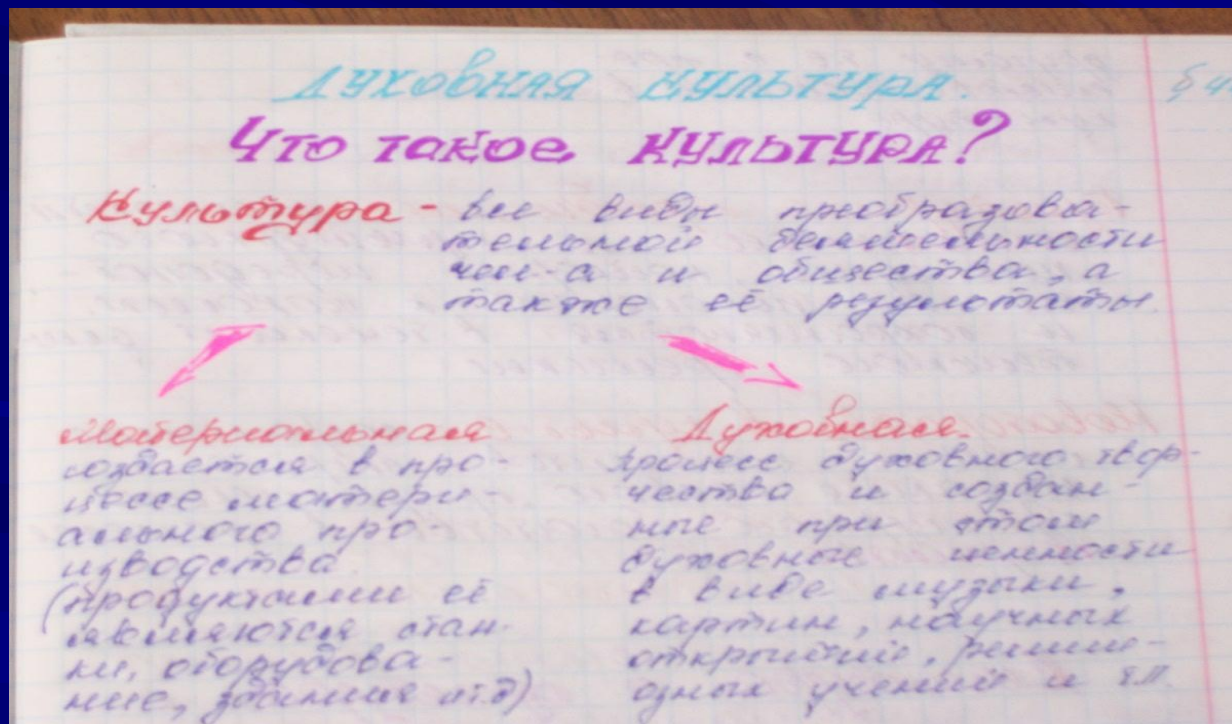 Духовная культура. §4
Что такое культура?
Культура - все виды преобразова-
тельной деятельности
чел-а и общества, а
также её результаты.
Материальная
создается в про-
цессе матери-
ального про-
изводства
(продуктами её
являются стан-
ки, оборудова-
ние, здания и т.д)
Духовная
процесс духовного твор-
чества и создан-
ные при этом
духовные ценности
в виде музыки,
картин, научных
открытий, религи-
озных учений и т.п.